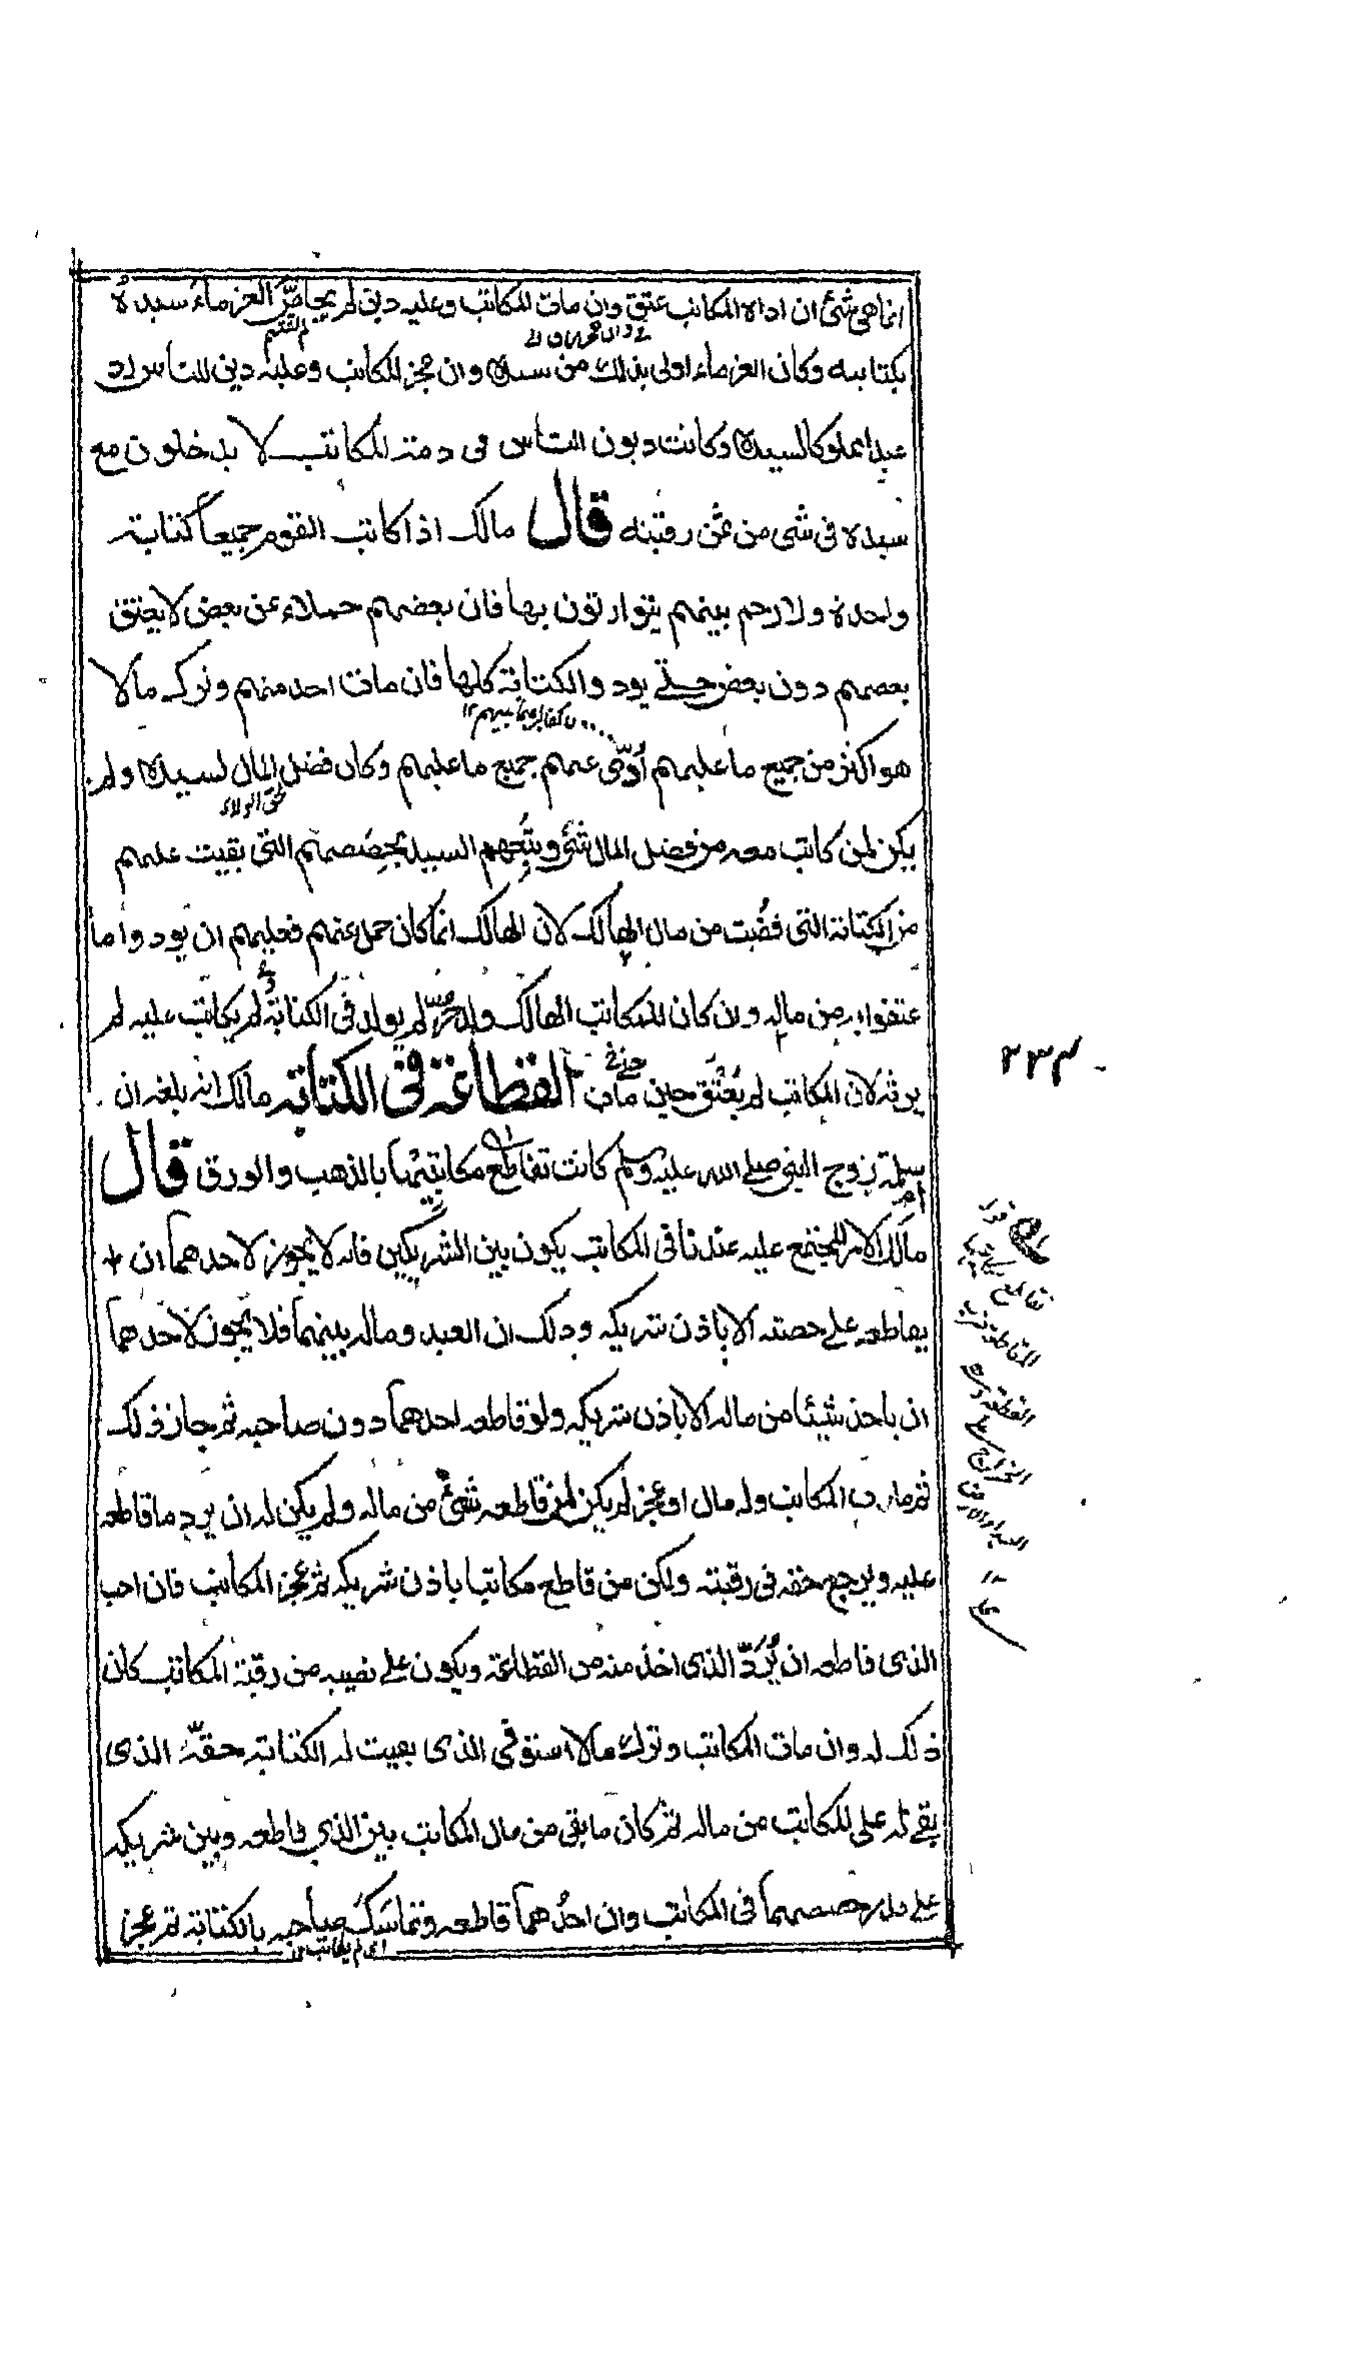 انما هي شئ ان اداه المكاتب عتق وان مات المكاتب وعليه دين لم يحاصّ الغرماء سيده
بكتابته وكان الغرماء اولى بذلك من سيده وان عجز المكاتب وعليه دين للناس رد
عبدا مملوكا لسيده وكانت ديون الناس في ذمة المكاتب لا يدخلون مع
سيده في شي من ثمن رقبته قال مالك اذا كاتب القوم جميعا كتابة
واحدة ولا رحم بينهم يتوارثون بها فان بعضهم حملاء عن بعض لا يعتق
بعضهم دون بعض حتے يودوا الكتابة كلها فان مات احد منهم وترك مالا
هو اكثر من جميع ما عليهم اُدّى عنهم جميع ما عليهم وكان فضل المال لسيده ولم
حق الولاء
يكن لمن كاتب معه من فضل المال شئ ويتبعهم السيد بحصصهم التي بقيت عليهم
من الكتابة التي قضيت من مال الهالك لان الهالك انما كان حمل عنهم فعليهم ان يودوا ما
عتقوا به من ماله وان كان للمكاتب الهالك ولد حرّ لم يولد في الكتابة ولم يكاتب عليه لم
يرثه لان المكاتب لم يُعْتَق حتے حين مات القطاعة في الكتابة مالك انه بلغه ان
ام سلمة زوج النبي صلے الله عليه وسلم كانت تقاطع مكاتبيها بالذهب والورق قال
مالك الامر المجتمع عليه عندنا في المكاتب يكون بين الشريكين فانه لا يجوز لاحدهما ان
يقاطعه علے حصته الا باذن شريكه وذلك ان العبد وماله بينهما فلا يجوز لاحدهما
ان ياخذ شيئا من ماله الا باذن شريكه ولو قاطعه احدهما دون صاحبه ثم جاز ذلك
ثم مات المكاتب وله مال او عجز لم يكن لمن قاطعه شئ من ماله ولم يكن له ان يرد ما قاطعه
عليه ويرجع حقه في رقبته ولكن من قاطع مكاتبا باذن شريكه ثم عجز المكاتب فان احب
الذي قاطعه ان يُرَدّ الذي اخذ منه من القطاعة ويكون علے نصيبه من رقبة المكاتب كان
ذلك له وان مات المكاتب وترك مالا استوفى الذي بقيت له الكتابة حقّه الذي
بقے له على المكاتب من ماله ثم كان ما بقي من مال المكاتب بين الذي قاطعه وبين شريكه
علے قدر حصصهما في المكاتب وان احدهما قاطعه وتماسك صاحبه بالكتابة ثم عجز
اي لم يقاطع
٢٣٤